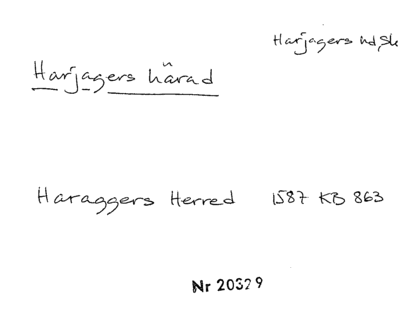 Harjagers hd, Sk
Harjagers härad
Haraggers Herred 1587 KB 863
Nr 20329